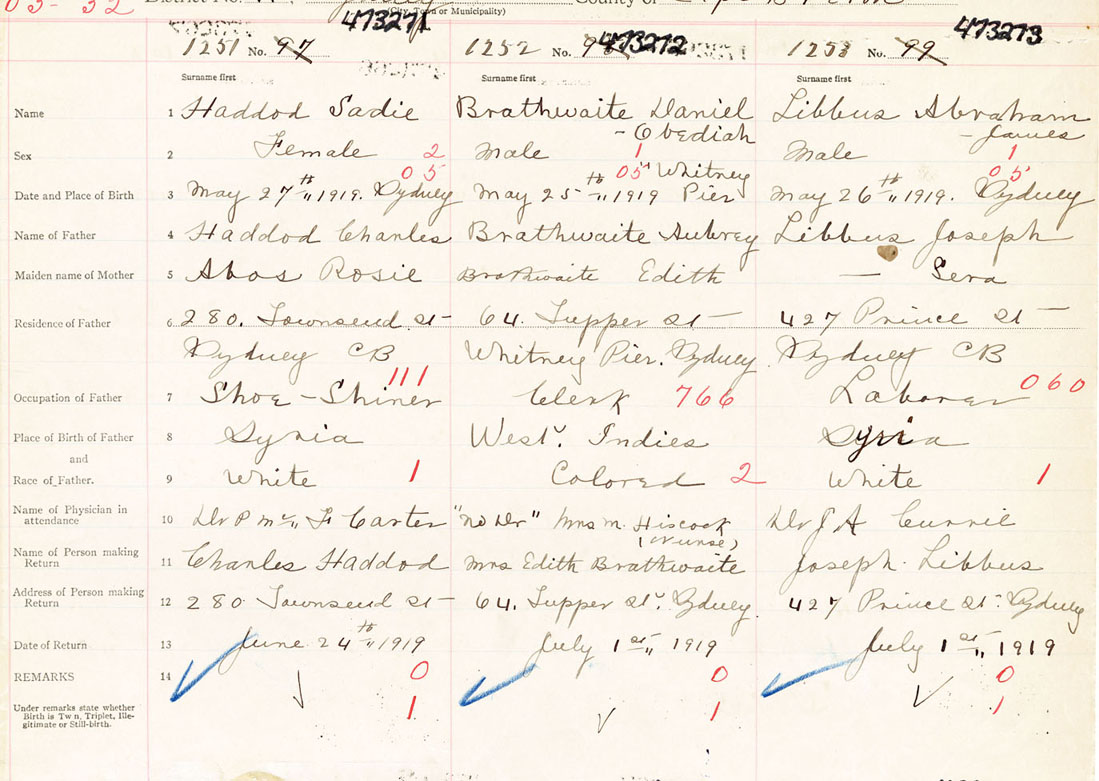 03-32 District No. County of
(City, Town or Municipality)
473271 473272 473273
1251 No. 97 1252 No. 9 1253 No. 99
Surname first Surname first Surname first
Name 1 Haddod Sadie Brathwaite Daniel Libbus Abraham
- Obediah - James
Sex 2 Female 2 Male 1 Male 1
05 05 Whitney 05
Date and Place of Birth 3 May 27th 1919. Sydney May 25th 1919 Pier May 26th 1919. Sydney
Name of Father 4 Haddod Charles Brathwaite Aubrey Libbus Joseph
Maiden name of Mother 5 Abos Rosie Brathwaite Edith — Sera
Residence of Father 6 280. Townsend St 64. Tupper St 427 Prince St
Sydney CB Whitney Pier. Sydney Sydney CB
111
Occupation of Father 7 Shoe-Shiner Clerk 766 Laborer 060
Place of Birth of Father 8 Syria West. Indies Syria
and
Race of Father. 9 White 1 Colored 2 White 1
Name of Physician in
attendance 10 Dr P Mc F Carter "No Dr" Mrs M. Hiscock Dr J A Currie
(Nurse)
Name of Person making
Return 11 Charles Haddod Mrs Edith Brathwaite Joseph Libbus
Address of Person making
Return 12 280 Townsend St 64. Tupper St. Sydney 427 Prince St. Sydney
Date of Return 13 June 24th 1919 July 1st 1919 July 1st 1919
REMARKS 14 0 0 0
Under remarks state whether
Birth is Twn, Triplet, Ille-
gitimate or Still-birth. 1 1 1